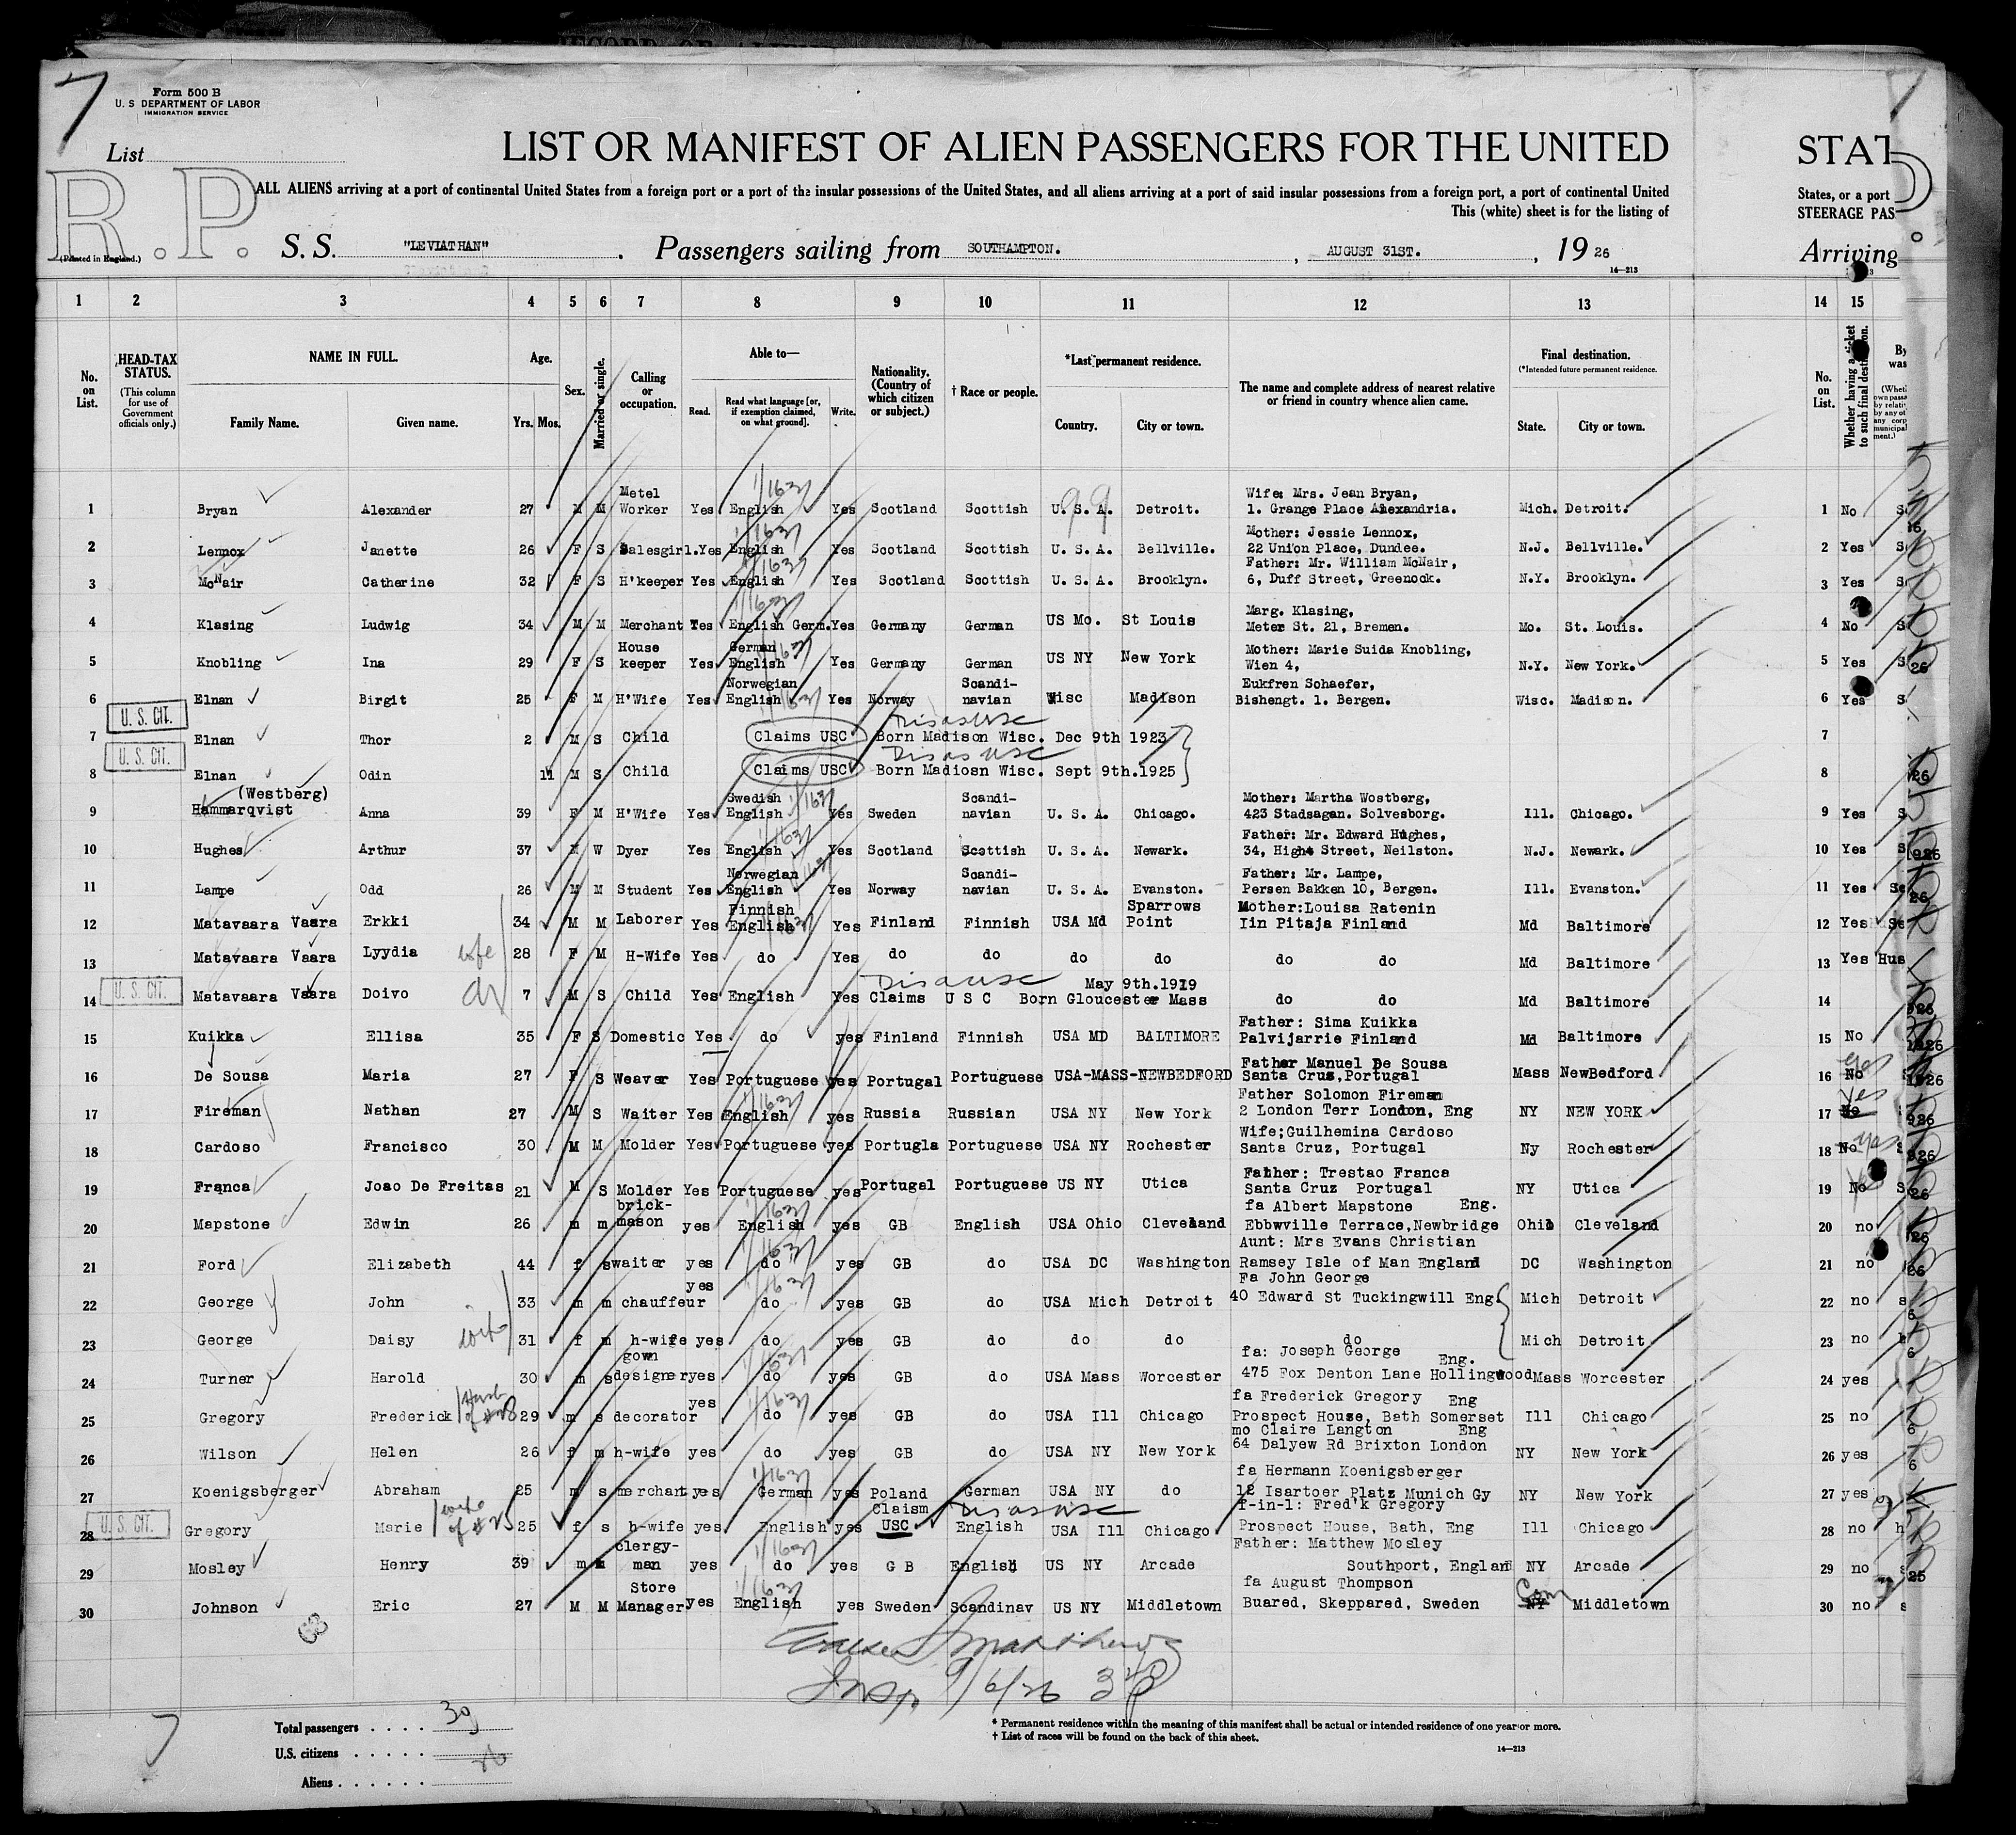 7
Form 500 B
U. S DEPARTMENT OF LABOR
IMMIGRATION SERVICE
List
R.P.
(Printed in England.)
LIST OR MANIFEST OF ALIEN PASSENGERS FOR THE UNITED STAT
ALL ALIENS arriving at a port of continental United States from a foreign port or a port of the insular possessions of the United States, and all aliens arriving at a port of said insular possessions from a foreign port, a port of continental United States, or a port
This (white) sheet is for the listing of STEERAGE PAS
S. S. "LEVIATHAN". Passengers sailing from SOUTHAMPTON. , AUGUST 31ST. , 19 26 Arriving
14—213
1 2 3 4 5 6 7 8 9 10 11 12 13 14 15
No. on List. HEAD-TAX STATUS. (This column for use of Government officials only.) NAME IN FULL. Family Name. Given name. Age. Yrs. Mos. Sex. Married or single. Calling or occupation. Able to— Read. Read what language [or, if exemption claimed, on what ground]. Write. Nationality. (Country of which citizen or subject.) † Race or people. *Last permanent residence. Country. City or town. The name and complete address of nearest relative or friend in country whence alien came. Final destination. (*Intended future permanent residence. State. City or town. No. on List. Whether having a ticket to such final destination. By was
1 Bryan Alexander 27 M M Metel Worker Yes English Yes Scotland Scottish U. S. A. Detroit. Wife: Mrs. Jean Bryan, 1. Grange Place Alexandria. Mich. Detroit. 1 No
2 Lennox Janette 26 F S Salesgirl. Yes English Yes Scotland Scottish U. S. A. Bellville. Mother: Jessie Lennox, 22 Union Place, Dundee. N.J. Bellville. 2 Yes
3 McNair Catherine 32 F S H'keeper Yes English Yes Scotland Scottish U. S. A. Brooklyn. Father: Mr. William McNair, 6, Duff Street, Greenock. N.Y. Brooklyn. 3 Yes
4 Klasing Ludwig 34 M M Merchant Yes English Germ. Yes Germany German US Mo. St Louis Marg. Klasing, Meter St. 21, Bremen. Mo. St. Louis. 4 No
5 Knobling Ina 29 F S House keeper Yes German English Yes Germany German US NY New York Mother: Marie Suida Knobling, Wien 4, N.Y. New York. 5 Yes
6 Elnan Birgit 25 F M H'Wife Yes Norwegian English Yes Norway Scandi-navian Wisc Madison Eukfren Schaefer, Bishengt. 1. Bergen. Wisc. Madison. 6 Yes
U. S. CIT.
7 Elnan Thor 2 M S Child Claims USC Born Madison Wisc. Dec 9th 1923 7
U. S. CIT.
8 Elnan Odin 11 M S Child Claims USC Born Madiosn Wisc. Sept 9th.1925 8
9 (Westberg) Hammarqvist Anna 39 F M H'Wife Yes Swedish English Yes Sweden Scandi-navian U. S. A. Chicago. Mother: Martha Wostberg, 423 Stadsagan. Solvesborg. Ill. Chicago. 9 Yes
10 Hughes Arthur 37 M W Dyer Yes English Yes Scotland Scottish U. S. A. Newark. Father: Mr. Edward Hughes, 34, High Street, Neilston. N.J. Newark. 10 Yes
11 Lampe Odd 26 M M Student Yes Norwegian English Yes Norway Scandi-navian U. S. A. Evanston. Father: Mr. Lampe, Persen Bakken 10, Bergen. Ill. Evanston. 11 Yes
12 Matavaara Vaara Erkki 34 M M Laborer Yes Finnish English Yes Finland Finnish USA Md Sparrows Point Mother:Louisa Ratenin Iin Pitaja Finland Md Baltimore 12 Yes
13 Matavaara Vaara Lyydia wife 28 F M H-Wife Yes do Yes do do do do do do Md Baltimore 13 Yes Hus
U. S. CIT.
14 Matavaara Vaara Doivo 7 M S Child Yes English Yes Claims U S C Born Gloucester Mass May 9th.1919 do do Md Baltimore 14
15 Kuikka Ellisa 35 F S Domestic Yes do yes Finland Finnish USA MD BALTIMORE Father: Sima Kuikka Palvijarrie Finland Md Baltimore 15 No
16 De Sousa Maria 27 F S Weaver Yes Portuguese yes Portugal Portuguese USA-MASS-NEWBEDFORD Father Manuel De Sousa Santa Cruz,Portugal Mass NewBedford 16 No yes
17 Fireman Nathan 27 M S Waiter Yes English yes Russia Russian USA NY New York Father Solomon Fireman 2 London Terr London, Eng NY NEW YORK 17 No Yes
18 Cardoso Francisco 30 M M Molder Yes Portuguese yes Portugla Portuguese USA NY Rochester Wife;Guilhemina Cardoso Santa Cruz, Portugal Ny Rochester 18 No yes
19 Franca Joao De Freitas 21 M S Molder Yes Portuguese yes Portugal Portuguese US NY Utica Father: Trestao Franca Santa Cruz Portugal NY Utica 19 No
20 Mapstone Edwin 26 m m brick-mason yes English yes GB English USA Ohio Cleveland fa Albert Mapstone Eng. Ebbwville Terrace,Newbridge Ohio Cleveland 20 no
21 Ford Elizabeth 44 f s waiter yes do yes GB do USA DC Washington Aunt: Mrs Evans Christian Ramsey Isle of Man England DC Washington 21 no
22 George John 33 m m chauffeur yes do yes GB do USA Mich Detroit Fa John George 40 Edward St Tuckingwill Eng. Mich Detroit 22 no
23 George Daisy wife 31 f m h-wife yes do yes GB do do do do Mich Detroit 23 no
24 Turner Harold 30 m s gown designer yes do yes GB do USA Mass Worcester fa: Joseph George Eng. 475 Fox Denton Lane Hollingwood Mass Worcester 24 yes
25 Gregory Frederick Husb of #28 29 m s decorator yes do yes GB do USA Ill Chicago fa Frederick Gregory Eng Prospect House, Bath Somerset Ill Chicago 25 no
26 Wilson Helen 26 f m h-wife yes do yes GB do USA NY New York mo Claire Langton Eng 64 Dalyew Rd Brixton London NY New York 26 yes
27 Koenigsberger Abraham 25 m s merchant yes German yes Poland German USA NY do fa Hermann Koenigsberger 12 Isartoer Platz Munich Gy NY New York 27 yes
U. S. CIT.
28 Gregory Marie wife of #25 25 f s h-wife yes English yes Claism USC English USA Ill Chicago f-in-l: Fred'k Gregory Prospect House, Bath, Eng Ill Chicago 28 no
29 Mosley Henry 39 m m clergy-man yes do yes G B English US NY Arcade Father: Matthew Mosley Southport, England NY Arcade 29 no
30 Johnson Eric 27 M M Store Manager yes English yes Sweden Scandinav US NY Middletown fa August Thompson Buared, Skeppared, Sweden NY Conn Middletown 30 no
Insp 9/6/26
Total passengers . . . . 30
U.S. citizens . . . . .
Aliens . . . . . .
* Permanent residence within the meaning of this manifest shall be actual or intended residence of one year or more.
† List of races will be found on the back of this sheet.
14—213